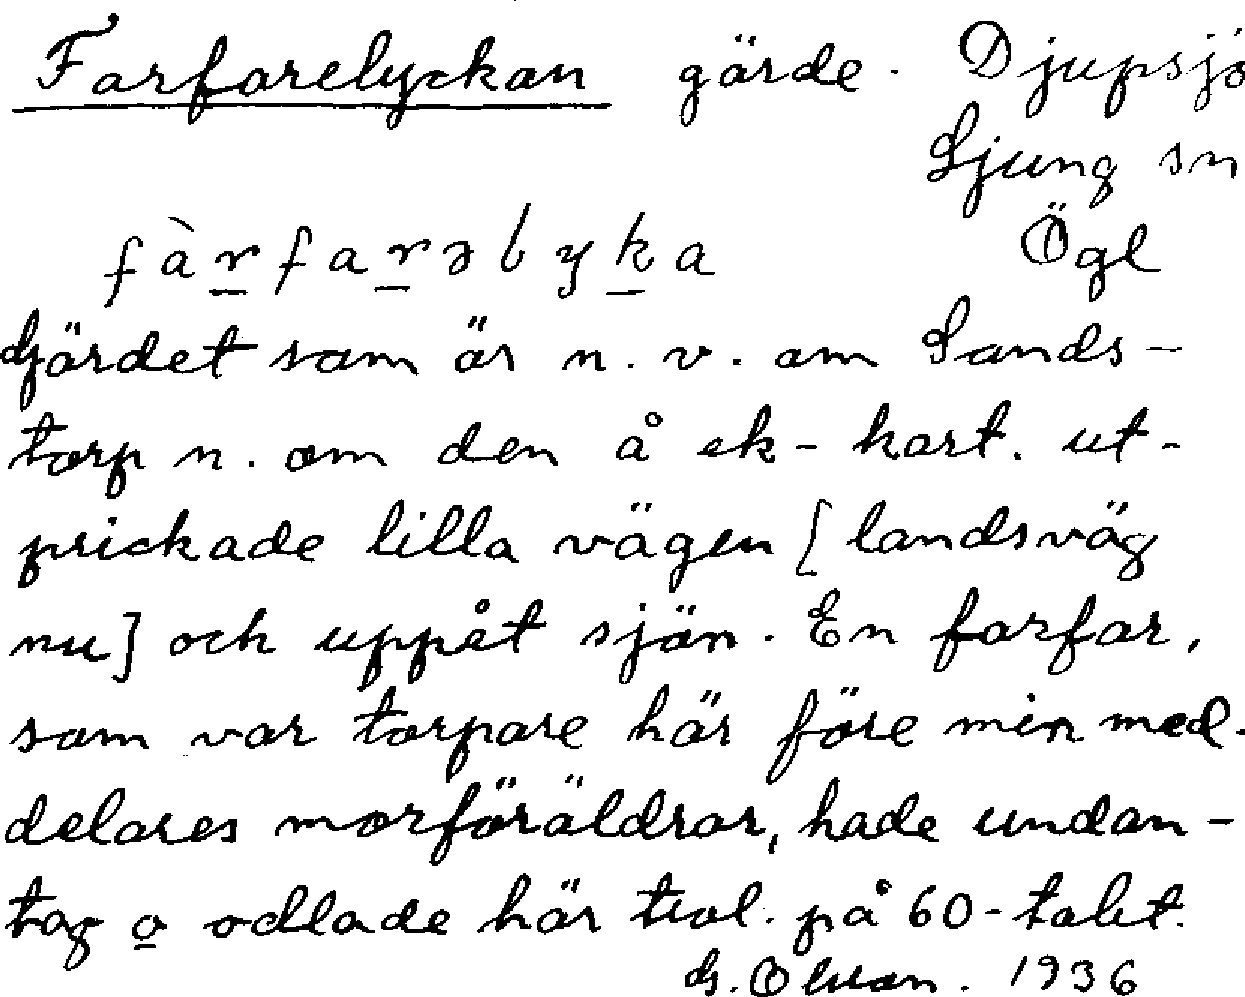 Farfarelyckan gärde. Djupsjö
Ljung sn
fàrfarəlyka Ögl
Gärdet som är n. v. om Sands-
torp n. om den å ek-kart. ut-
prickade lilla vägen [landsväg
nu] och uppåt sjön. En farfar,
som var torpare här före min med-
delares morföräldrar, hade undan-
tag o odlade här trol. på 60-talet.
G. Olson. 1936